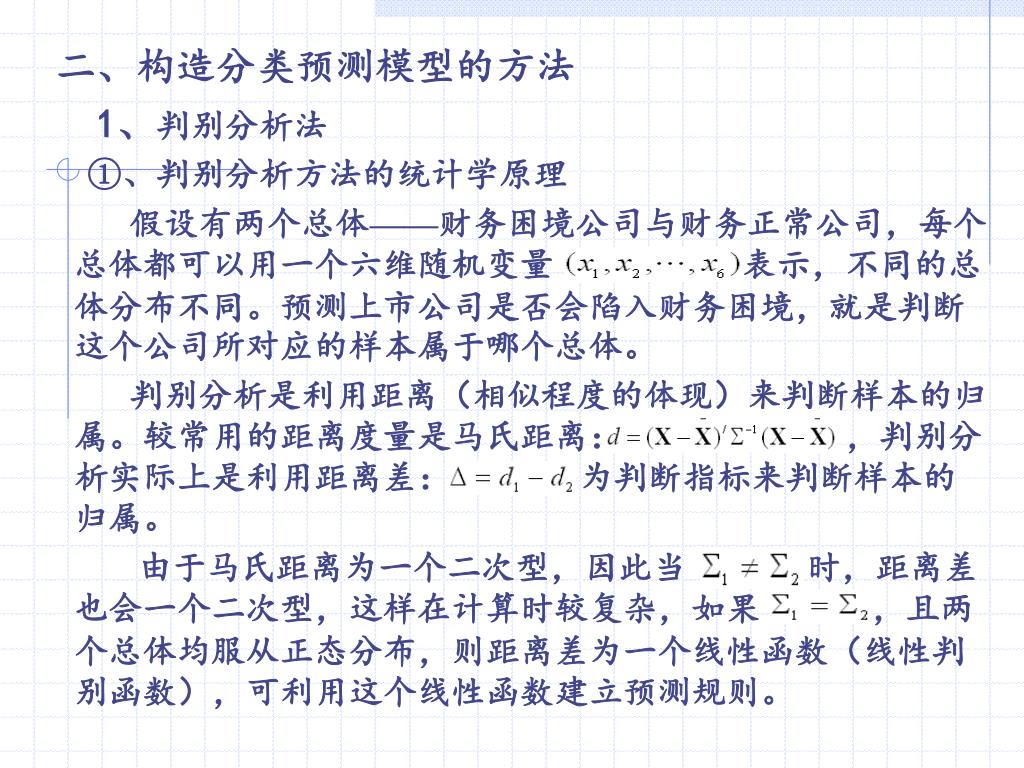 二、构造分类预测模型的方法
1、判别分析法
①、判别分析方法的统计学原理
假设有两个总体——财务困境公司与财务正常公司，每个
总体都可以用一个六维随机变量 (x₁,x₂,⋯,x₆)表示，不同的总
体分布不同。预测上市公司是否会陷入财务困境，就是判断
这个公司所对应的样本属于哪个总体。
判别分析是利用距离（相似程度的体现）来判断样本的归
属。较常用的距离度量是马氏距离：d = (X − X̄)′Σ⁻¹(X − X̄) ，判别分
析实际上是利用距离差：Δ = d₁ − d₂ 为判断指标来判断样本的
归属。
由于马氏距离为一个二次型，因此当 Σ₁ ≠ Σ₂ 时，距离差
也会一个二次型，这样在计算时较复杂，如果 Σ₁ = Σ₂，且两
个总体均服从正态分布，则距离差为一个线性函数（线性判
别函数），可利用这个线性函数建立预测规则。